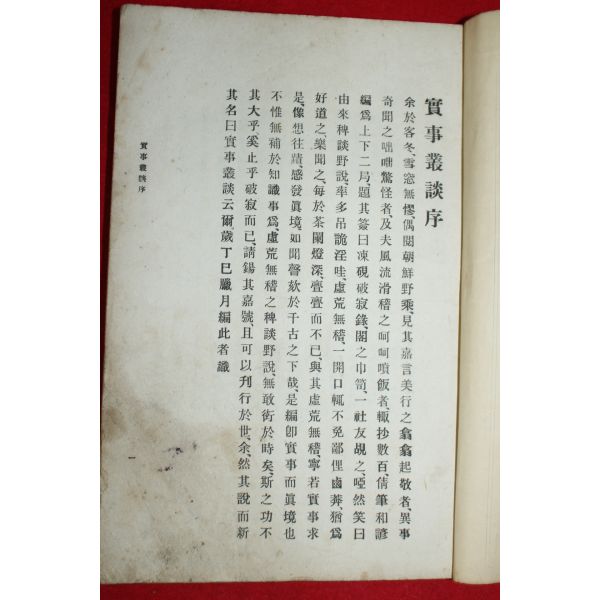 實事叢談序
余於客冬、雪窓無憀、偶閱朝鮮野乘、見其嘉言美行之翕翕起敬者、異事
奇聞之咄咄驚怪者、及夫風流滑稽之呵呵噴飯者、輒抄數百、倩筆和諺
編爲上下二局、題其簽曰凍硯破寂錄、閣之巾笥、一社友覘之、啞然笑曰
由來稗談野說、率多吊詭淫哇、虛荒無稽、一開口輒不免鄙俚鹵莽、猶爲
好道之、樂聞之、每於茶闌燈深、亹亹而不已、與其虛荒無稽、寧若實事求
是、像想往蹟、感發眞境、如聞謦欬於千古之下哉、是編卽實事而眞境也
不惟無補於知識事爲、虛荒無稽之稗談野說、無敢衒於時矣、斯之功不
其大乎、奚止乎破寂而已、請錫其嘉號、且可以刊行於世、余、然其說而新
其名曰實事叢談云爾、歲丁巳臘月編此者識
實事叢談序